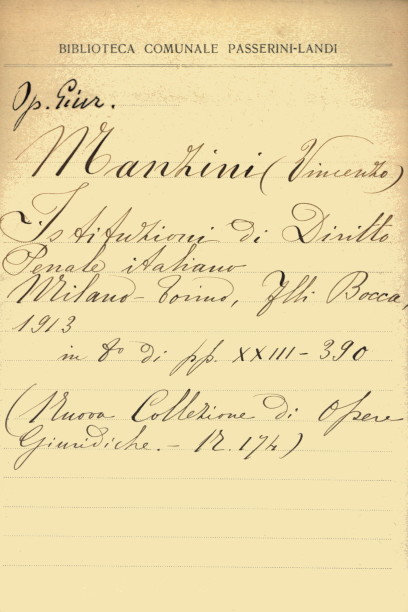 BIBLIOTECA COMUNALE PASSERINI-LANDI
Op. Giur.
Manzini (Vincenzo)
Istituzioni di Diritto
Penale italiano
Milano - Torino, Flli Bocca,
1913
in 8º di pp. XXIII - 390
(Nuova Collezione di Opere
Giuridiche. - N. 174)